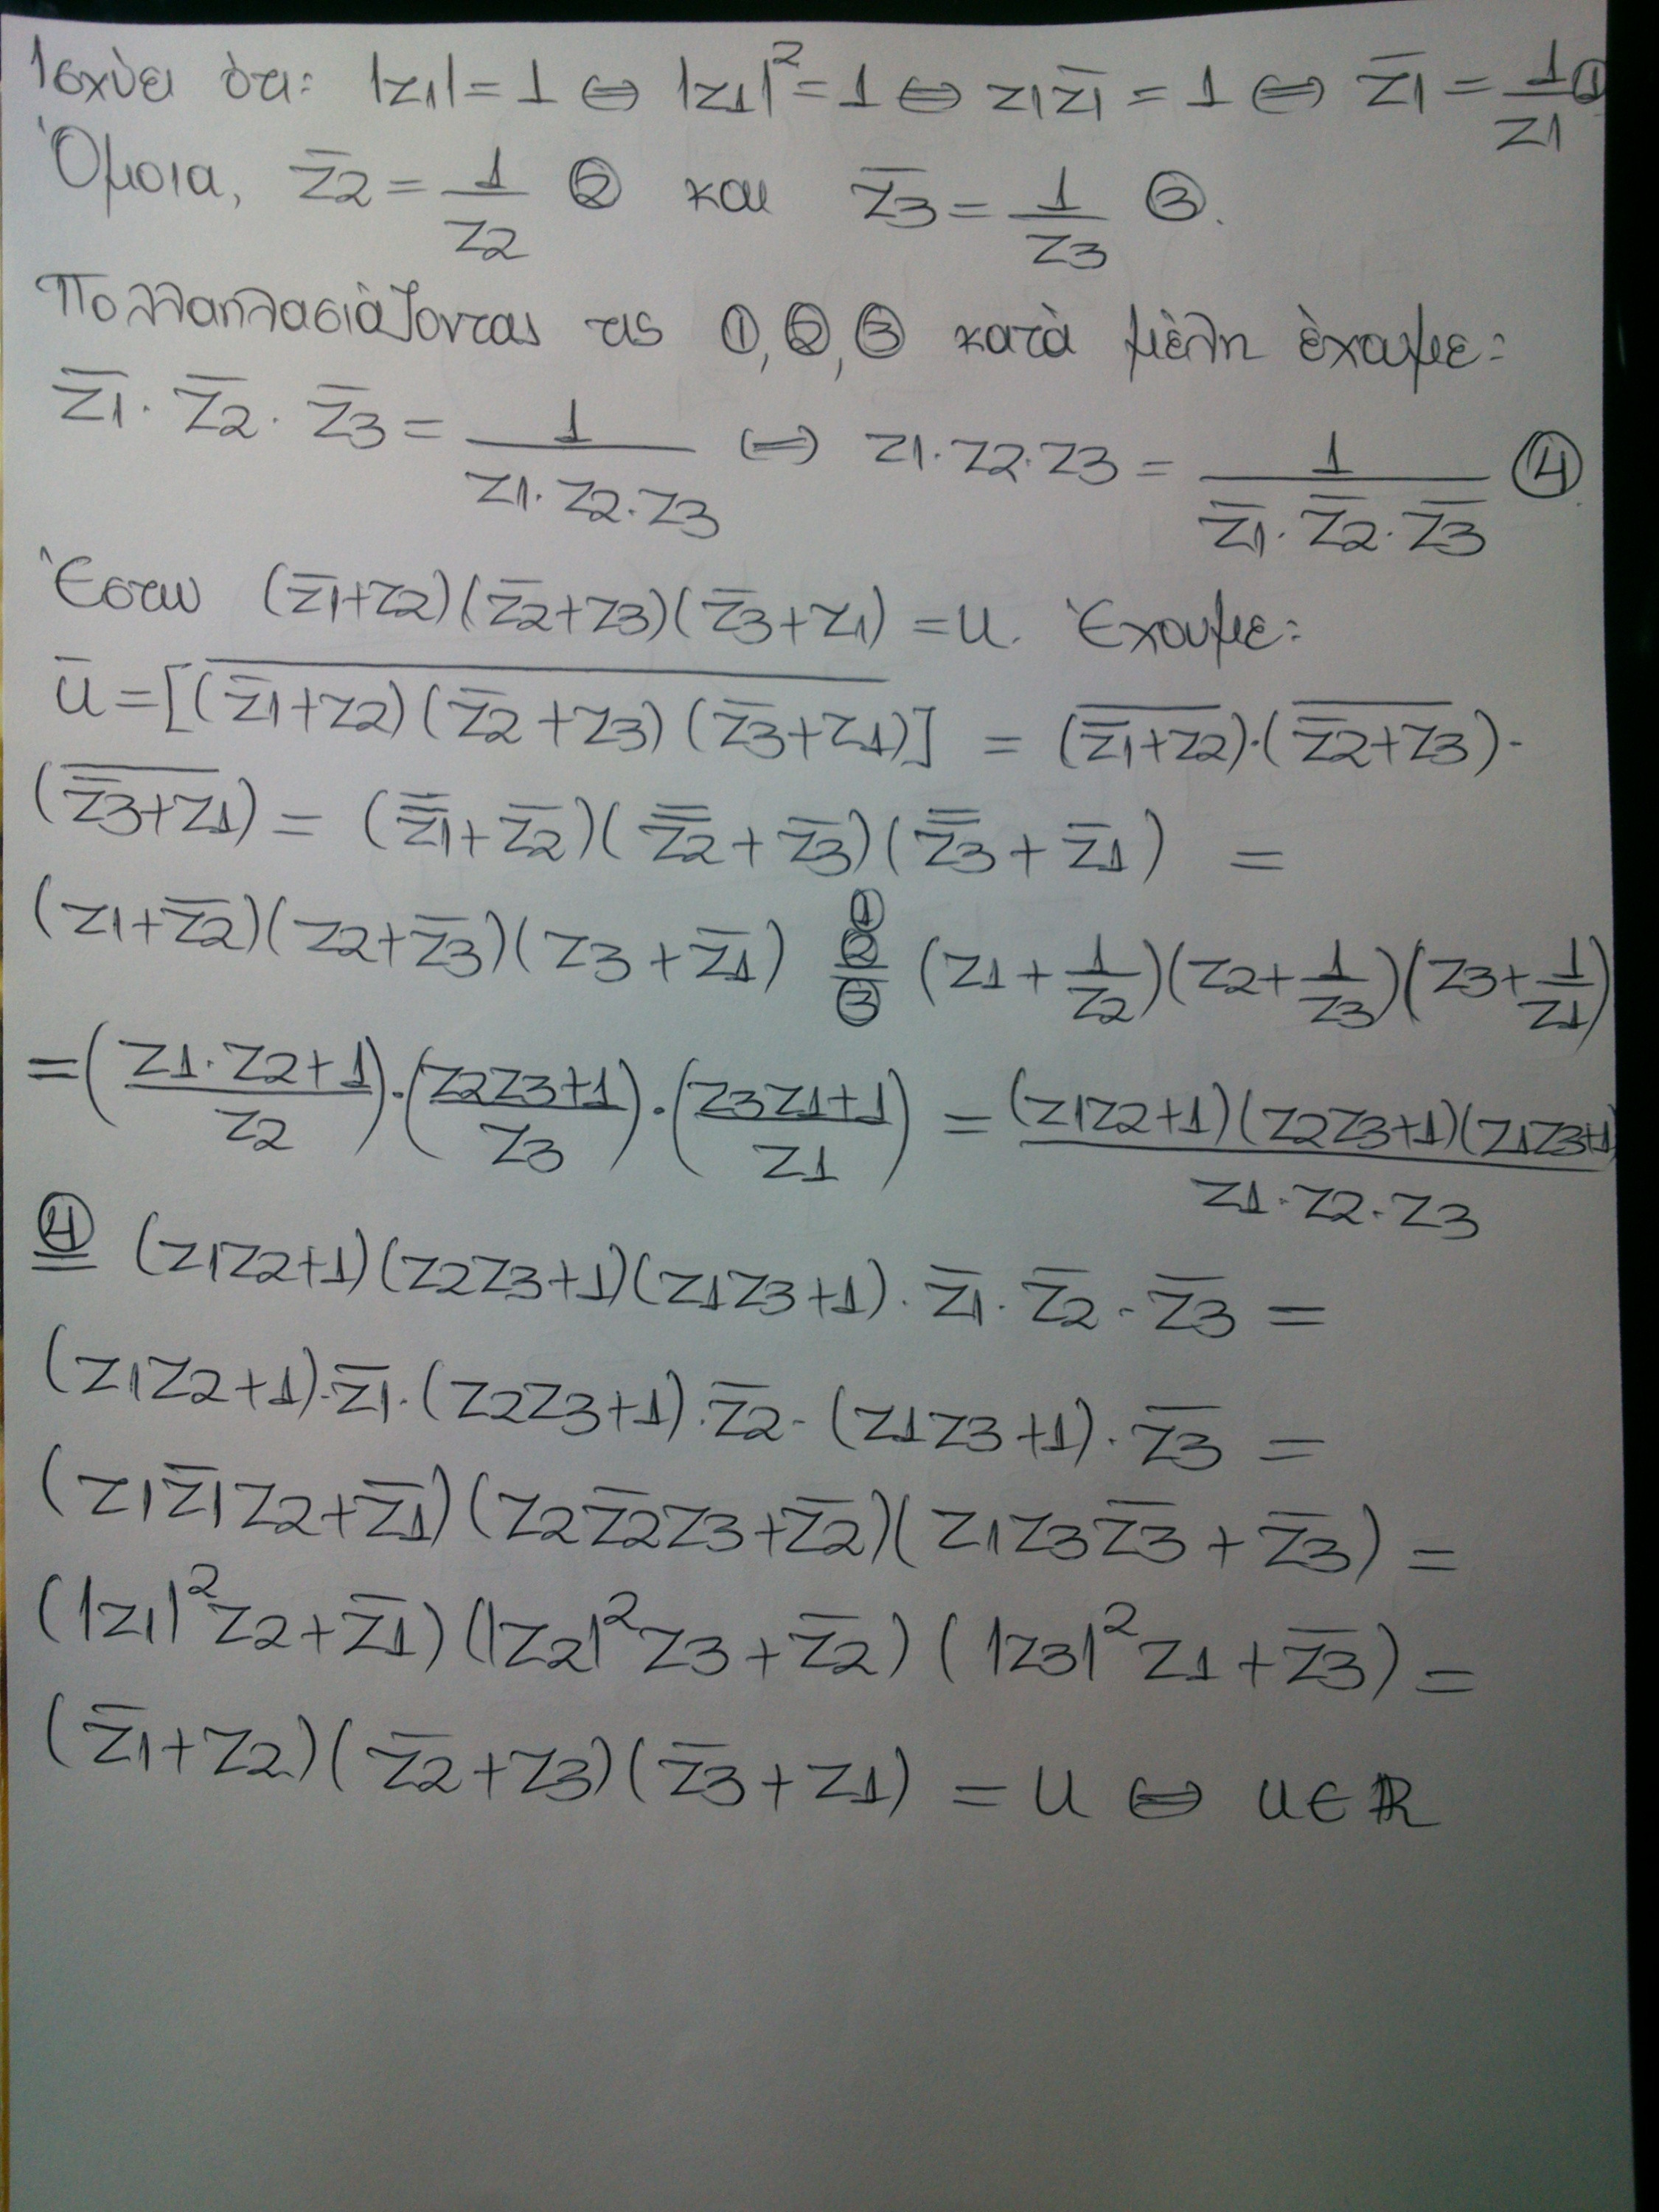 Ισχύει ότι: |z1| = 1 ⇔ |z1|² = 1 ⇔ z1z̅1 = 1 ⇔ z̅1 = 1/z1 ①
Όμοια, z̅2 = 1/z2 ② και z̅3 = 1/z3 ③.
Πολλαπλασιάζοντας τις ①, ②, ③ κατά μέλη έχουμε:
z̅1 · z̅2 · z̅3 = 1/(z1 · z2 · z3) ⇔ z1 · z2 · z3 = 1/(z̅1 · z̅2 · z̅3) ④.
Έστω (z̅1+z2)(z̅2+z3)(z̅3+z1) = u. Έχουμε:
u̅ = [\overline{(z̅1+z2)(z̅2+z3)(z̅3+z1)}] = (\overline{z̅1+z2}) · (\overline{z̅2+z3}) ·
(\overline{z̅3+z1}) = (\overline{z̅1}+z̅2)(\overline{z̅2}+z̅3)(\overline{z̅3}+z̅1) =
(z1+z̅2)(z2+z̅3)(z3+z̅1) ①②=③ (z1+1/z2)(z2+1/z3)(z3+1/z1)
= ((z1·z2+1)/z2) · ((z2z3+1)/z3) · ((z3z1+1)/z1) = (z1z2+1)(z2z3+1)(z1z3+1)/(z1·z2·z3)
④= (z1z2+1)(z2z3+1)(z1z3+1) · z̅1 · z̅2 · z̅3 =
(z1z2+1)·z̅1·(z2z3+1)·z̅2·(z1z3+1)·z̅3 =
(z1z̅1z2+z̅1)(z2z̅2z3+z̅2)(z1z3z̅3+z̅3) =
(|z1|²z2+z̅1)(|z2|²z3+z̅2)(|z3|²z1+z̅3) =
(z̅1+z2)(z̅2+z3)(z̅3+z1) = u ⇔ u∈ℝ